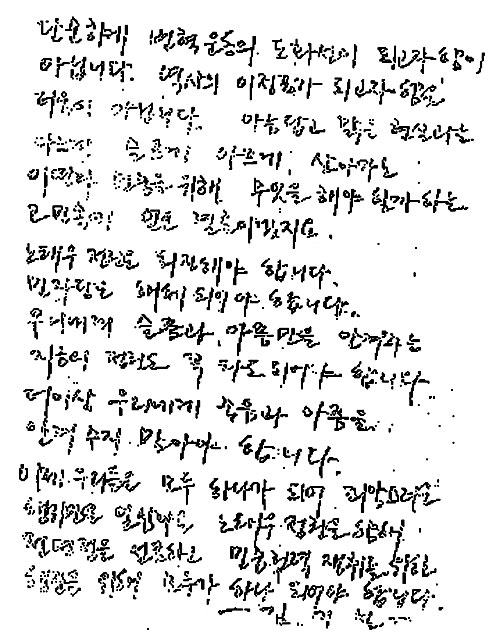 단순하게 변혁운동의 도화선이 되고자 함이
아닙니다. 역사의 이정표가 되고자 함은
더욱이 아닙니다. 아름답고 맑은 현실과는
슬프게 아프게, 살아가는
이땅의 위해 무엇을 해야 할까 하는
고민속에 얻은 결론이겠지요.
노태우 정권은 퇴진해야 합니다.
민자당은 해체 되어야 합니다.
우리에게 슬픔과 아픔만을 안겨주는
지금의 정권은 꼭 타도 되어야 합니다
더이상 우리에게 슬픔과 아픔을
안겨 주지 말아야 합니다.
이제 우리들은 모두 하나가 되어
노태우 정권을
민중권력 쟁취를 위한
위해 모두가 하나 되어야 합니다.